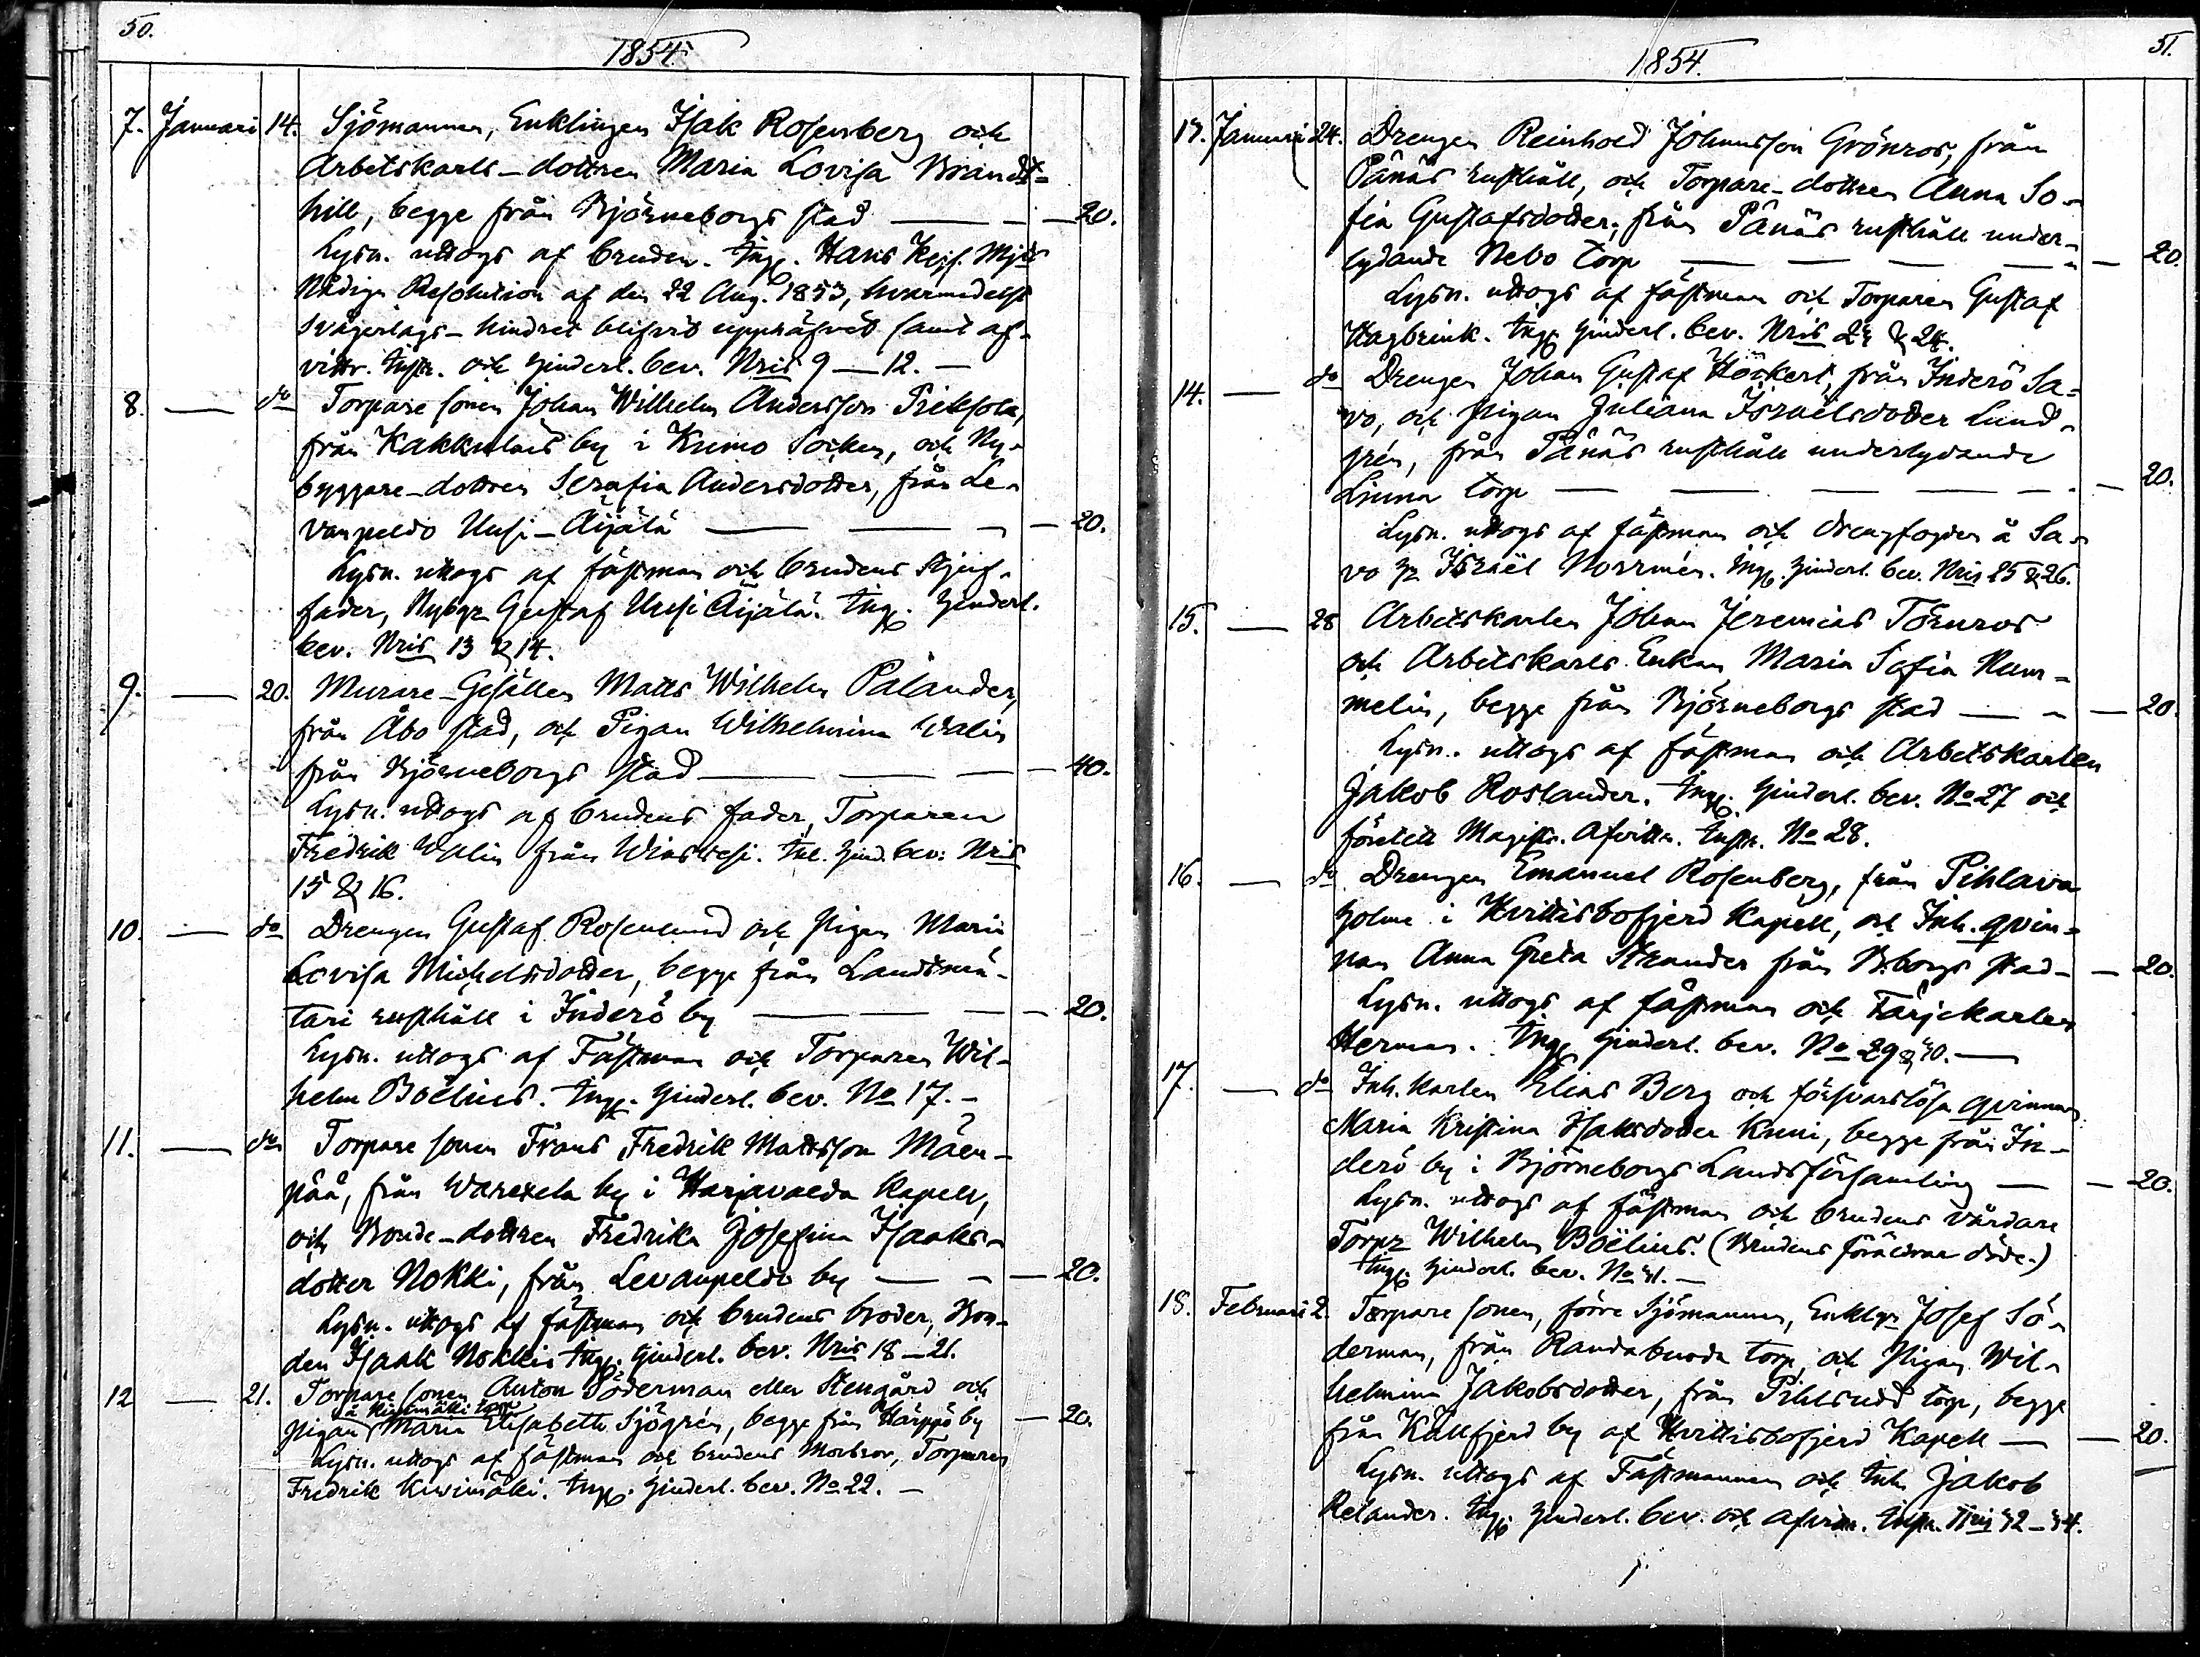 50.
1854.
7. Januari 14. Sjömannen, Enklingen Isak Rosenberg och
Arbetskarls-dottren Maria Lovisa Brandt-
hill, begge från Björneborgs stad — 20.
Lysn. uttogs af bruden. Ingg. Hans Kejs. Mjts
Nådiga Resolution af den 22 Aug. 1853, hvarmedelst
Svågerlags-hindret blifvit upphäfvet samt af-
vittr. instr. och hinderl. bev. Nris 9 — 12. —
8. — do Torpare sonen Johan Wilhelm Andersson Prihsola,
från Kakkulais by i Kumo Socken, och Ny-
byggare-dottren Serafia Andersdotter, från Le-
vanpeldo Uusi-Äijälä — 20.
Lysn. uttogs af fästman och brudens stjuf-
fader, Nybygr Gustaf Uusi Äijälä. Ingg. hinderl.
bev. Nris 13 & 14.
9. — 20. Murare-Gesällen Matts Wilhelm Palander,
från Åbo stad, och Pigan Wilhelmina Walin
från Björneborgs stad — 40.
Lysn. uttogs af brudens fader, Torparen
Fredrik Walin från Wiasvesi. Inl. hind. bev. Nris
15 & 16.
10. — do Drengen Gustaf Rosenlund och Pigan Maria
Lovisa Michelsdotter, begge från Landtmä-
tari rusthåll i Inderö by — 20.
Lysn. uttogs af Fästman och Torparen Wil-
helm Boëlius. Ingg. hinderl. bev. No 17. —
11. — do Torpare sonen Frans Fredrik Mattsson Mäen-
pää, från Warexela by i Harjavalda Kapell,
och Bonde-dottren Fredrika Josefina Isaaks-
dotter Nokki, från Levanpeldo by — 20.
Lysn. uttogs af fästman och brudens broder, Bon-
den Isaak Nokki. Ingg. hinderl. bev. Nris 18 — 21.
12 — 21. Torpare sonen Anton Söderman eller Stengård och
å Kivimäki torp
pigan Maria Elisabeth Sjögrén, begge från Harppö by — 20.
Lysn. uttogs af fästman och brudens Morbror, Torparen
Fredrik Kivimäki. Ingg. hinderl. bev. No 22. —
51.
1854.
13. Januari 24. Drengen Reinhold Johansson Grönros, från
Pånäs rusthåll, och Torpare-dottren Anna So-
fia Gustafsdotter, från Pånäs rusthåll under-
lydande Nebo torp — 20.
Lysn. uttogs af fästman och Torparen Gustaf
Hagbrink. Ingg. hinderl. bev. Nris 23 & 24.
14. — do Drengen Johan Gustaf Höckert, från Inderö Sa-
vo, och pigan Juliana Israelsdotter Lund-
grén, från Pånäs rusthåll underlydande
Linna torp — 20.
Lysn. uttogs af fästman och drengfogden å Sa-
vo Hr Israël Norrmén. Ingg. hinderl. bev. Nris 25 & 26.
15. — 28 Arbetskarlen Johan Jeremias Törnros
och Arbetskarls Enkan Maria Sofia Rum-
melin, begge från Björneborgs stad — 20.
Lysn. uttogs af fästman och Arbetskarlen
Jakob Roslander. Ingg. hinderl. bev. No 27 och
företett Magistr. Afvittr. Instr. No 28.
16. — do Drengen Emanuel Rosenberg, från Pihlava
holme i Hvittisbofjerd Kapell, och Inh. qvin-
nan Anna Greta Strander från B.borgs stad — 20.
Lysn. uttogs af fästman och Färjekarlen
Herman. Ingg. hinderl. bev. No 29 & 30. —
17. — do Inh. karlen Elias Berg och försvarslösa qvinnan
Maria Kristina Isaksdotter Kuni, begge från In-
derö by i Björneborgs Landsförsamling — 20.
Lysn. uttogs af fästman och brudens vårdare
Torpr Wilhelm Boëlius. (Brudens föräldrar döde.)
Ingg. hinderl. bev. No 31. —
18. Februari 2. Torpare sonen, förre Sjömannen, Enklgr Josef Sö-
derman, från Randabuoda torp och Pigan Wil-
helmina Jakobsdotter, från Pihlsudd torp, begge
från Källfjerd by af Hvittisbofjerd Kapell — 20.
Lysn. uttogs af Fästmannen och Inh. Jakob
Relander. Ingg. hinderl. bev. och afvittr. instr. Nris 32 — 34.